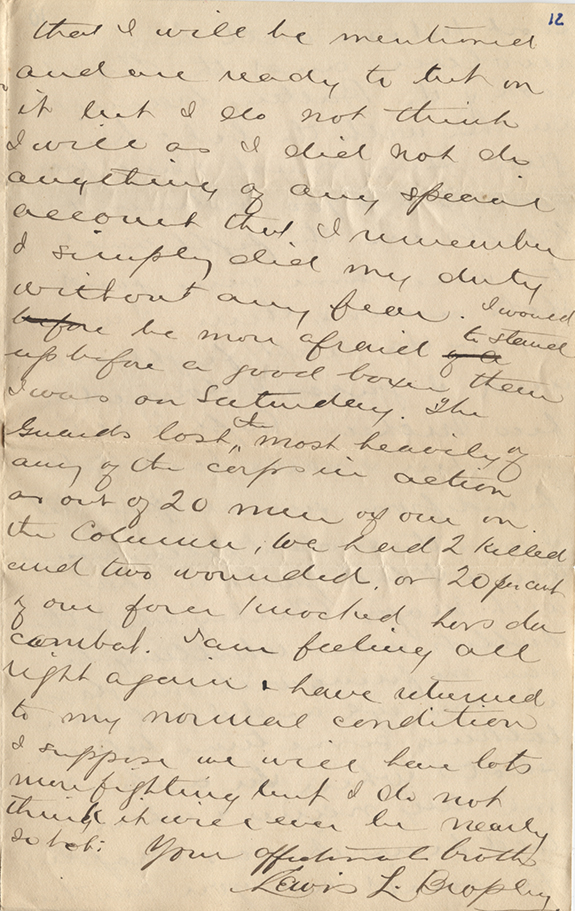 12
that I will be mentioned
and are ready to bet on
it but I do not think
I will as I did not do
anything of any special
account that I remember
I simply did my duty
without any fear. I would
before be more afraid of a to stand
up before a good boxer then
I was on Saturday. The
Guards lost the most heavily of
any of the corps in action
as out of 20 men of our on
the Column, we had 2 killed
and two wounded, or 20 per cent
of our force knocked hors du
combat. I am feeling all
right again & have returned
to my normal condition
I suppose we will have lots
more fighting but I do not
think it will ever be nearly
so hot. Your affectionate brother
Lewis L. Brophy